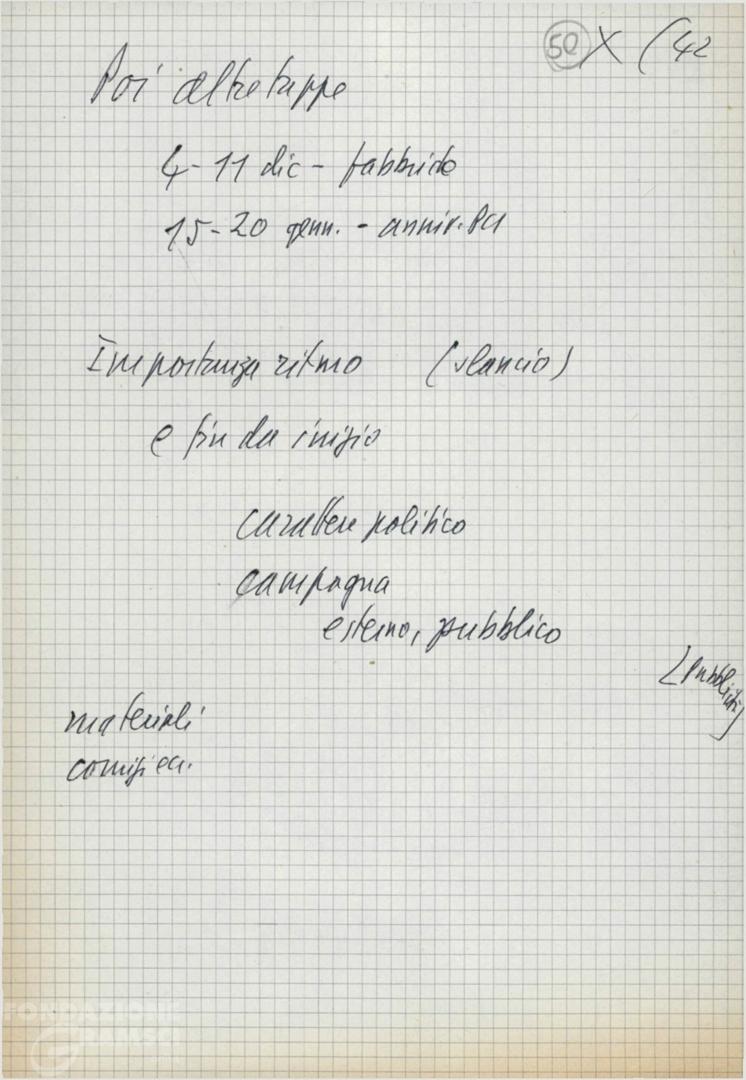 50 X (42
Poi altre tappe
4-11 dic - fabbriche
15-20 genn. - anniv. PCI
Importanza ritmo (slancio)
e fin da inizio
carattere politico
campagna
esterno, pubblico
[Pubblicità]
materiali
comizi ecc.
FONDAZIONE
GRAMSCI